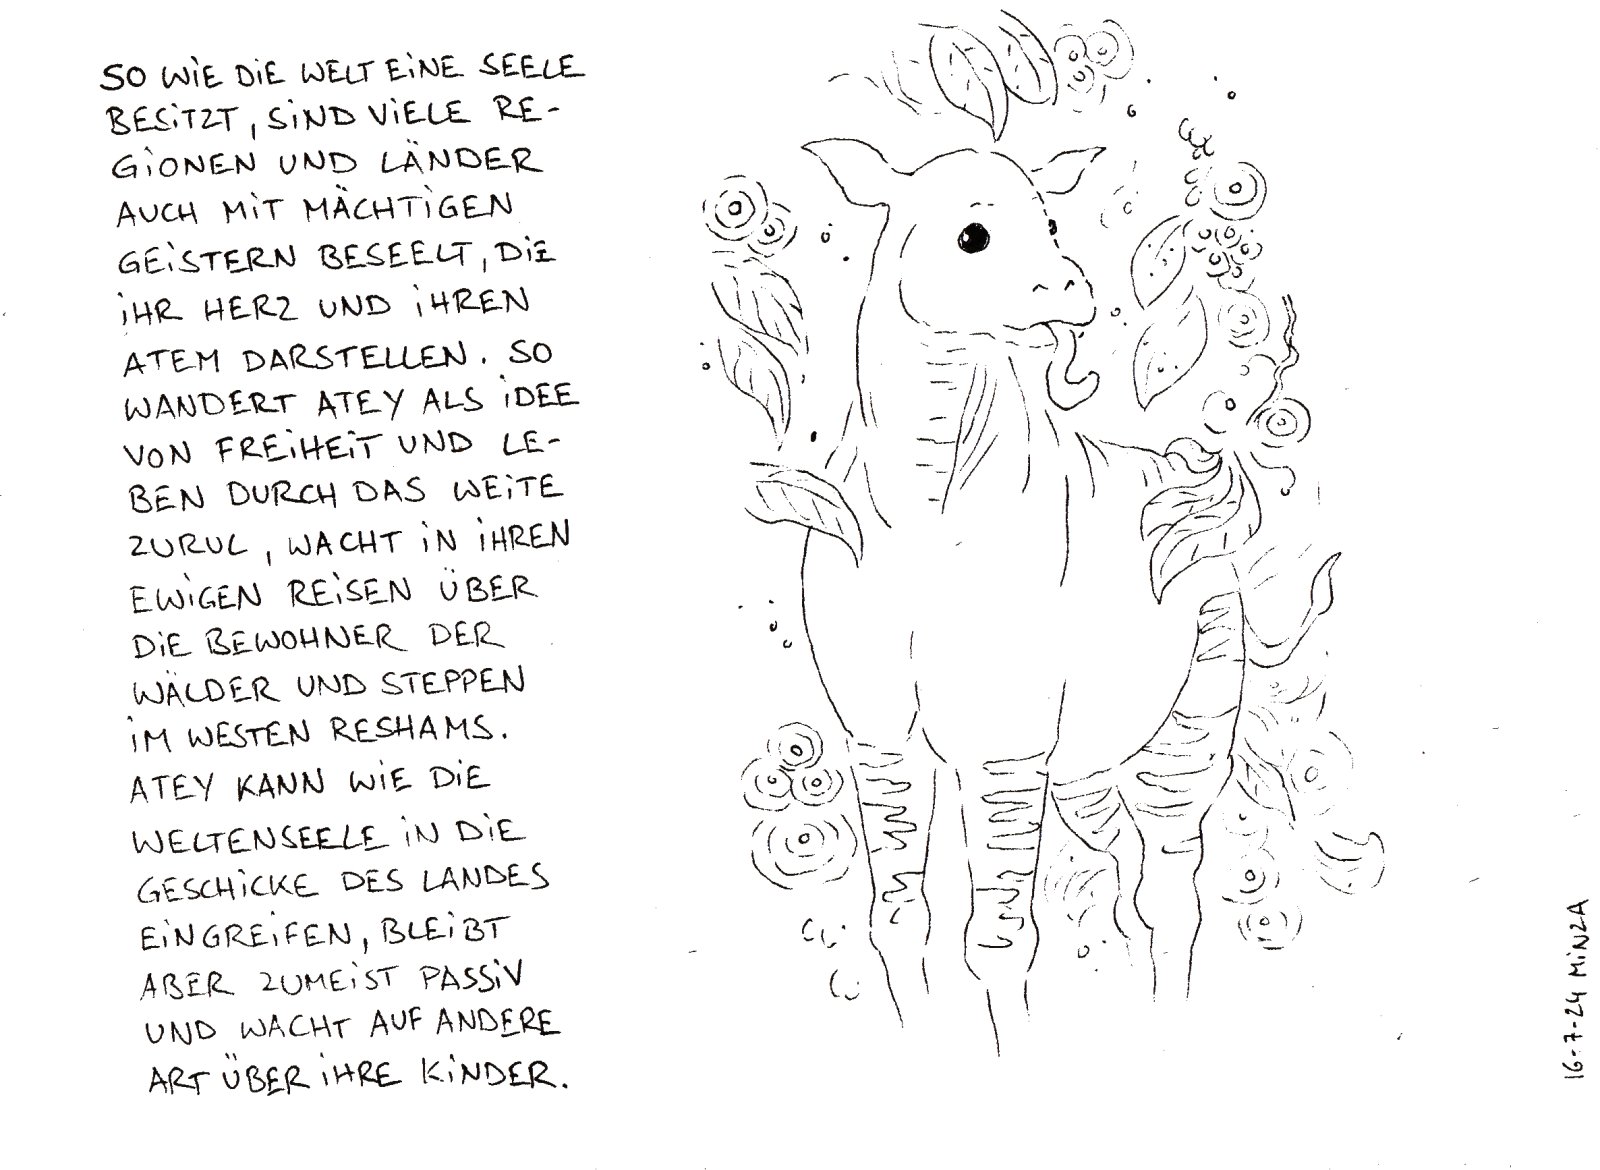 SO WIE DIE WELT EINE SEELE
BESITZT, SIND VIELE RE-
GIONEN UND LÄNDER
AUCH MIT MÄCHTIGEN
GEISTERN BESEELT, DIE
IHR HERZ UND IHREN
ATEM DARSTELLEN. SO
WANDERT ATEY ALS IDEE
VON FREIHEIT UND LE-
BEN DURCH DAS WEITE
ZURUL, WACHT IN IHREN
EWIGEN REISEN ÜBER
DIE BEWOHNER DER
WÄLDER UND STEPPEN
IM WESTEN RESHAMS.
ATEY KANN WIE DIE
WELTENSEELE IN DIE
GESCHICKE DES LANDES
EINGREIFEN, BLEIBT
ABER ZUMEIST PASSIV
UND WACHT AUF ANDERE
ART ÜBER IHRE KINDER.
16-7-24 MINZA